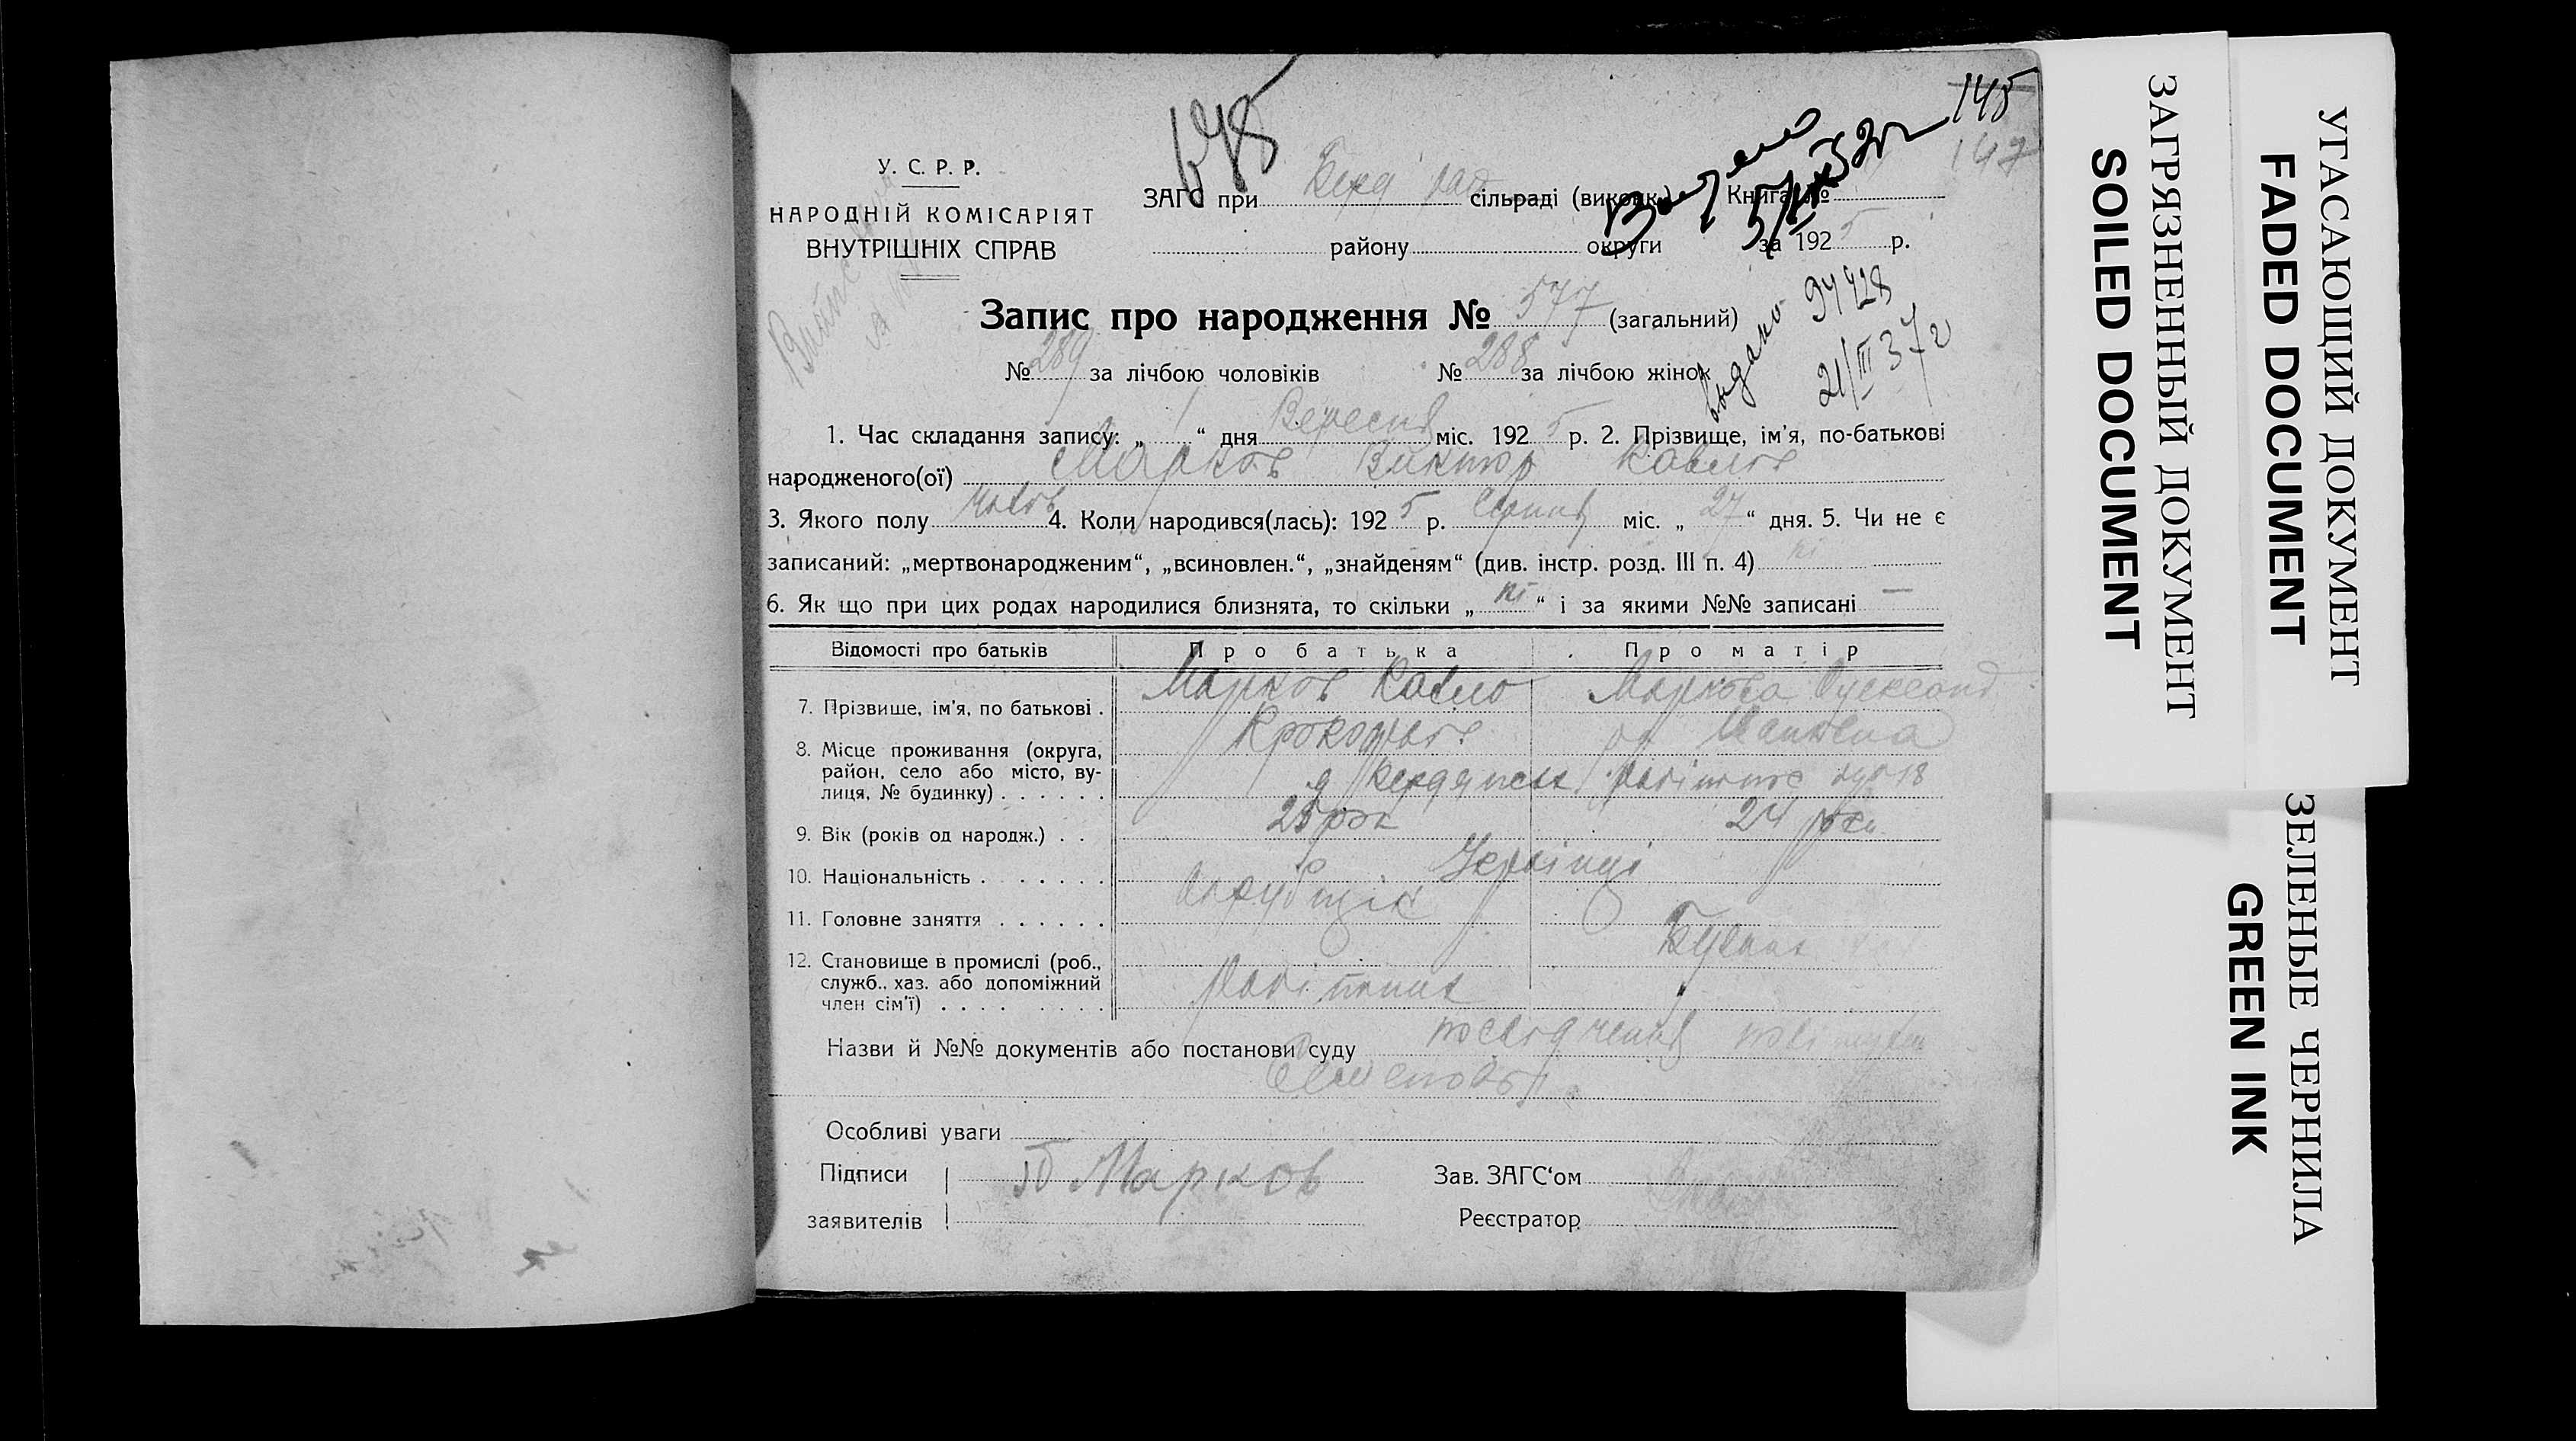 145
147
У. С. Р. Р.
НАРОДНІЙ КОМІСАРІЯТ
ВНУТРІШНІХ СПРАВ
ЗАГС при Берд сільраді (виконк.) Книга №
району округи за 1925 р.
Запис про народження № 577 (загальний)
видано 94428
21/III 37 г
№ 289 за лічбою чоловіків № 288 за лічбою жінок
1. Час складання запису: „ 1 “ дня Вересня міс. 1925 р. 2. Прізвище, ім'я, по-батькові
народженого(ої) Марков Виктор Павлов
3. Якого полу чолов 4. Коли народився(лась): 1925 р. Серпня міс. „ 27 “ дня. 5. Чи не є
записаний: „мертвонародженим“, „всиновлен.“, „знайденям“ (див. інстр. розд. III п. 4) ні
6. Як що при цих родах народилися близнята, то скільки „ ні “ і за якими №№ записані —
Відомості про батьків Про батька Про матір
7. Прізвище, ім'я, по батькові . Марков Павло Маркова Олександ
8. Місце проживання (округа,
район, село або місто, ву-
лиця, № будинку) . . . . . .
9. Вік (років од народж.) . . 25 рок 24 роки
10. Національність . . . . . . Українці
11. Головне заняття . . . . . .
12. Становище в промислі (роб.,
служб., хаз. або допоміжний
член сім'ї) . . . . . . . . Робітник
Назви й №№ документів або постанови суду посвідчення
Особливі уваги
Підписи П Марков Зав. ЗАГС‘ом
заявителів Реєстратор
УГАСАЮЩИЙ ДОКУМЕНТ
FADED DOCUMENT
ЗАГРЯЗНЕННЫЙ ДОКУМЕНТ
SOILED DOCUMENT
ЗЕЛЕНЫЕ ЧЕРНИЛА
GREEN INK